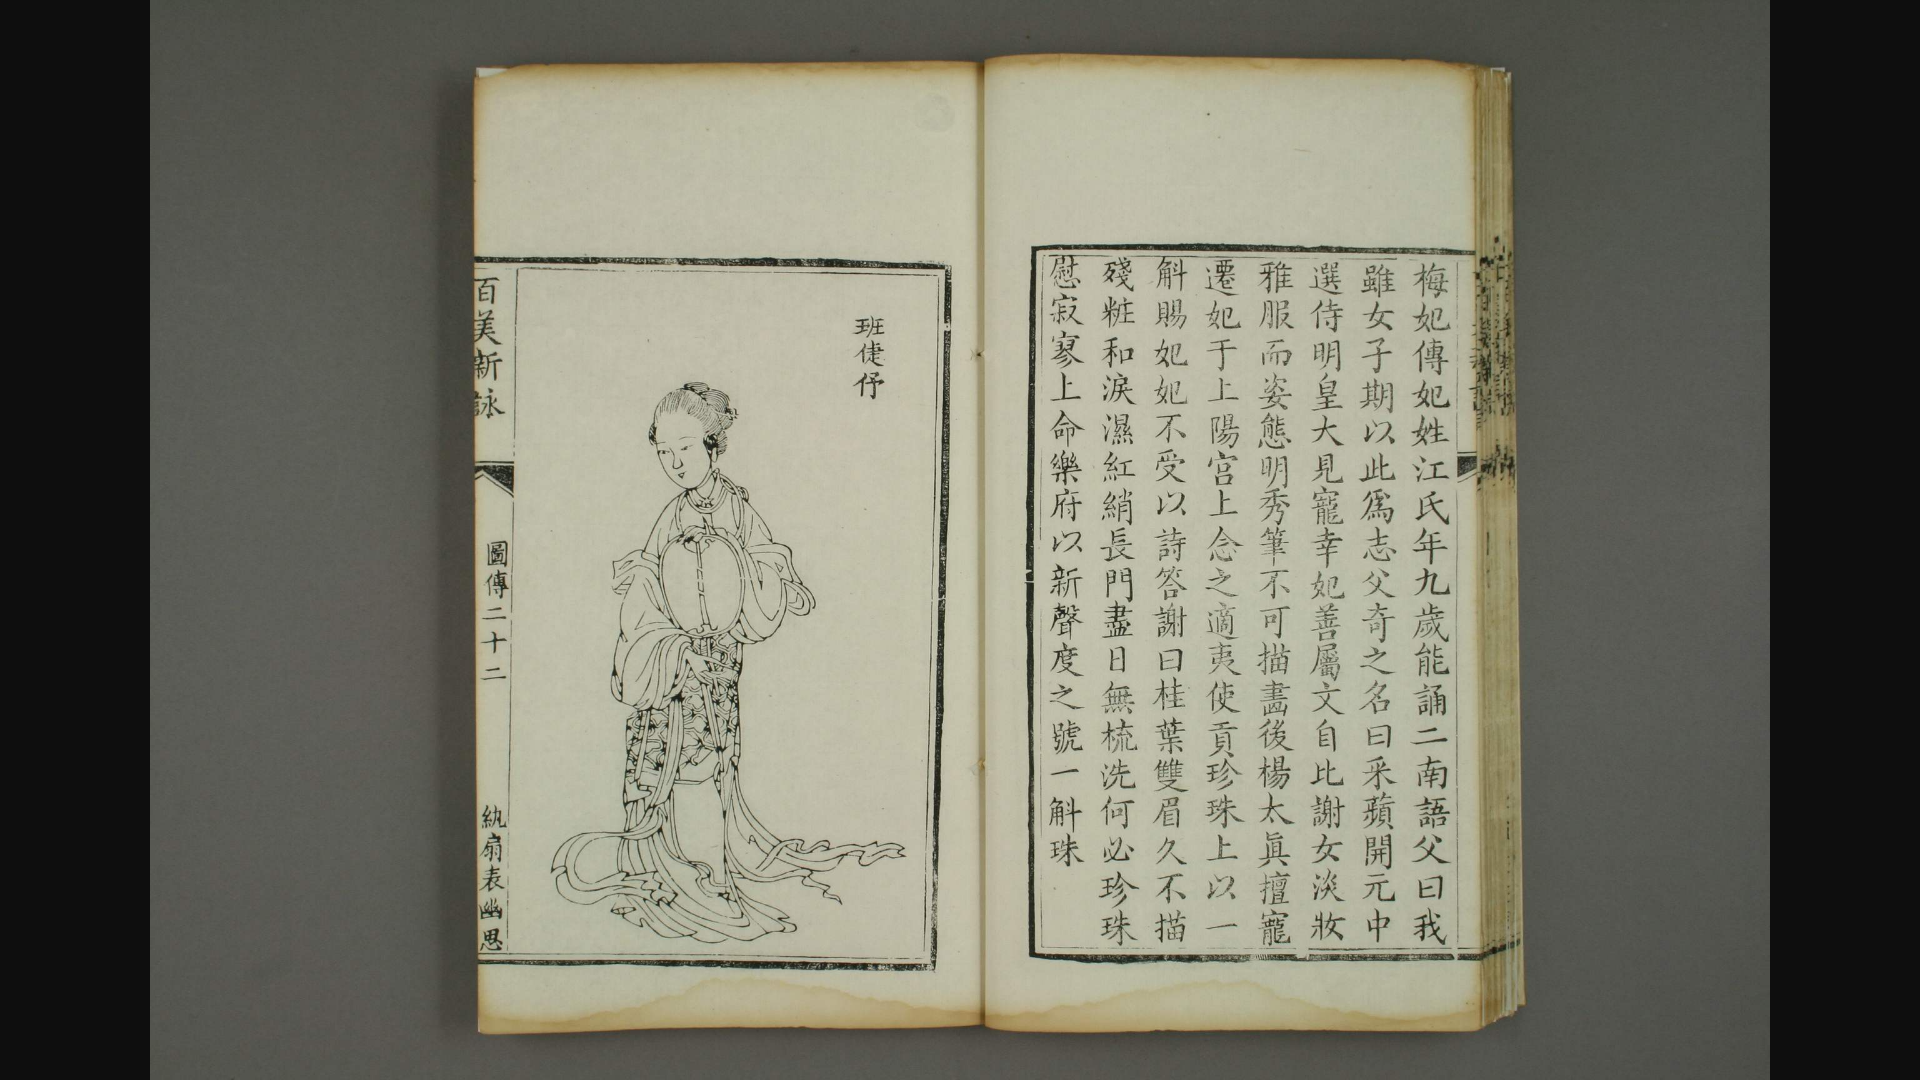 梅妃傳妃姓江氏年九歲能誦二南語父曰我
雖女子期以此爲志父奇之名曰采蘋開元中
選侍明皇大見寵幸妃善屬文自比謝女淡妝
雅服而姿態明秀筆不可描畵後楊太眞擅寵
遷妃于上陽宮上念之適夷使貢珍珠上以一
斛賜妃妃不受以詩答謝曰桂葉雙眉久不描
殘粧和淚濕紅綃長門盡日無梳洗何必珍珠
慰寂寥上命樂府以新聲度之號一斛珠
班倢伃
百美新詠
圖傳二十二
紈扇表幽思